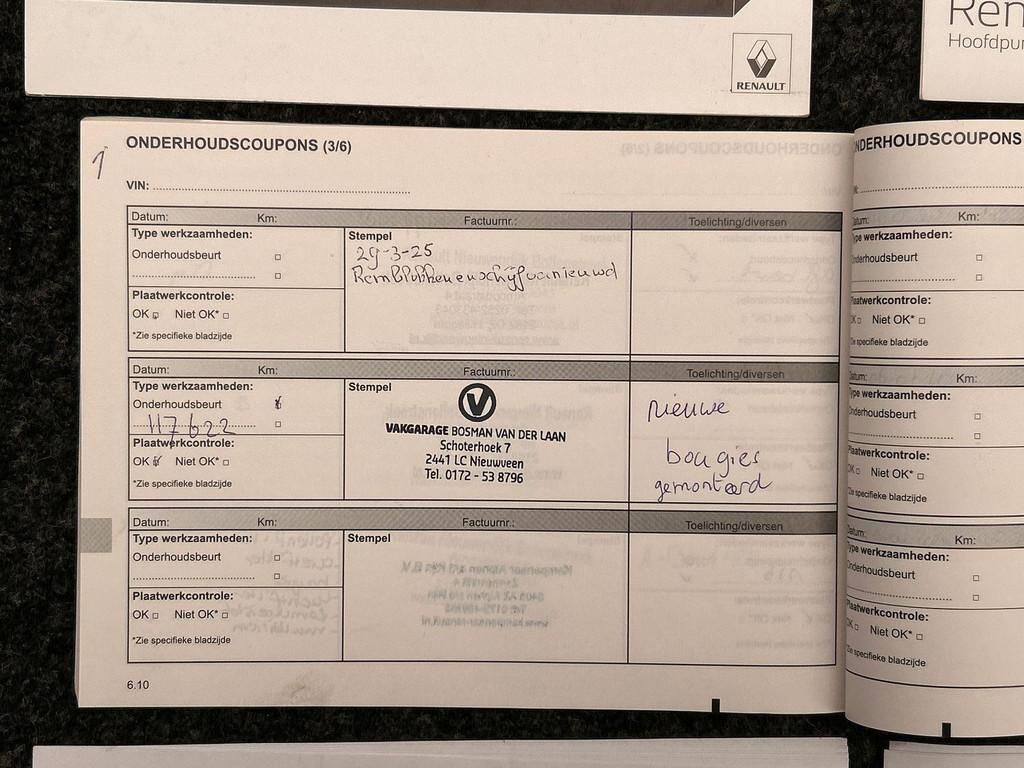 RENAULT
Ren
Hoofdpu
1
ONDERHOUDSCOUPONS (3/6)
VIN:
Datum: Km: Factuurnr.: Toelichting/diversen
Type werkzaamheden: Stempel
29-3-25
Onderhoudsbeurt
Plaatwerkcontrole:
OK Niet OK*
*Zie specifieke bladzijde
Datum: Km: Factuurnr.: Toelichting/diversen
Type werkzaamheden: Stempel
Onderhoudsbeurt
117622
Plaatwerkcontrole:
OK Niet OK*
*Zie specifieke bladzijde
V
VAKGARAGE BOSMAN VAN DER LAAN
Schoterhoek 7
2441 LC Nieuwveen
Tel. 0172 - 53 8796
nieuwe
bougies
gemonteerd
Datum: Km: Factuurnr.: Toelichting/diversen
Type werkzaamheden: Stempel
Onderhoudsbeurt
Plaatwerkcontrole:
OK Niet OK*
*Zie specifieke bladzijde
6.10
NDERHOUDSCOUPONS
Datum: Km:
Type werkzaamheden:
Onderhoudsbeurt
Plaatwerkcontrole:
OK Niet OK*
Zie specifieke bladzijde
Datum: Km:
Type werkzaamheden:
Onderhoudsbeurt
Plaatwerkcontrole:
OK Niet OK*
Zie specifieke bladzijde
Datum: Km:
Type werkzaamheden:
Onderhoudsbeurt
Plaatwerkcontrole:
OK Niet OK*
Zie specifieke bladzijde